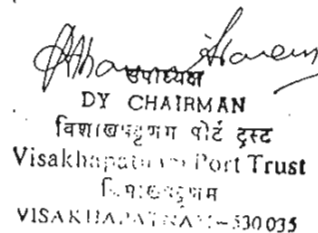 उपाध्यक्ष
DY CHAIRMAN
विशाखपट्टणम पोर्ट ट्रस्ट
Visakhapatnam Port Trust
विशाखपट्टणम
VISAKHAPATNAM-530 035